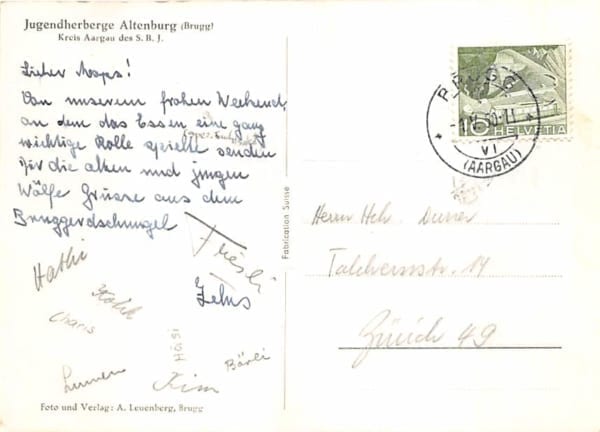 Jugendherberge Altenburg (Brugg)
Kreis Aargau des S. B. J.
Lieber Mops!
Von unserem frohen Weekend,
an dem das Essen eine ganz
wichtige Rolle spielte senden
Dir die alten und jungen
Wölfe Grüsse aus dem
Bruggerdschungel
Hathi
Kim
Bärli
Foto und Verlag: A. Leuenberg, Brugg
Fabrication Suisse
BRUGG
VI
(AARGAU)
10 HELVETIA
Herrn Hch.
14
Zürich 49